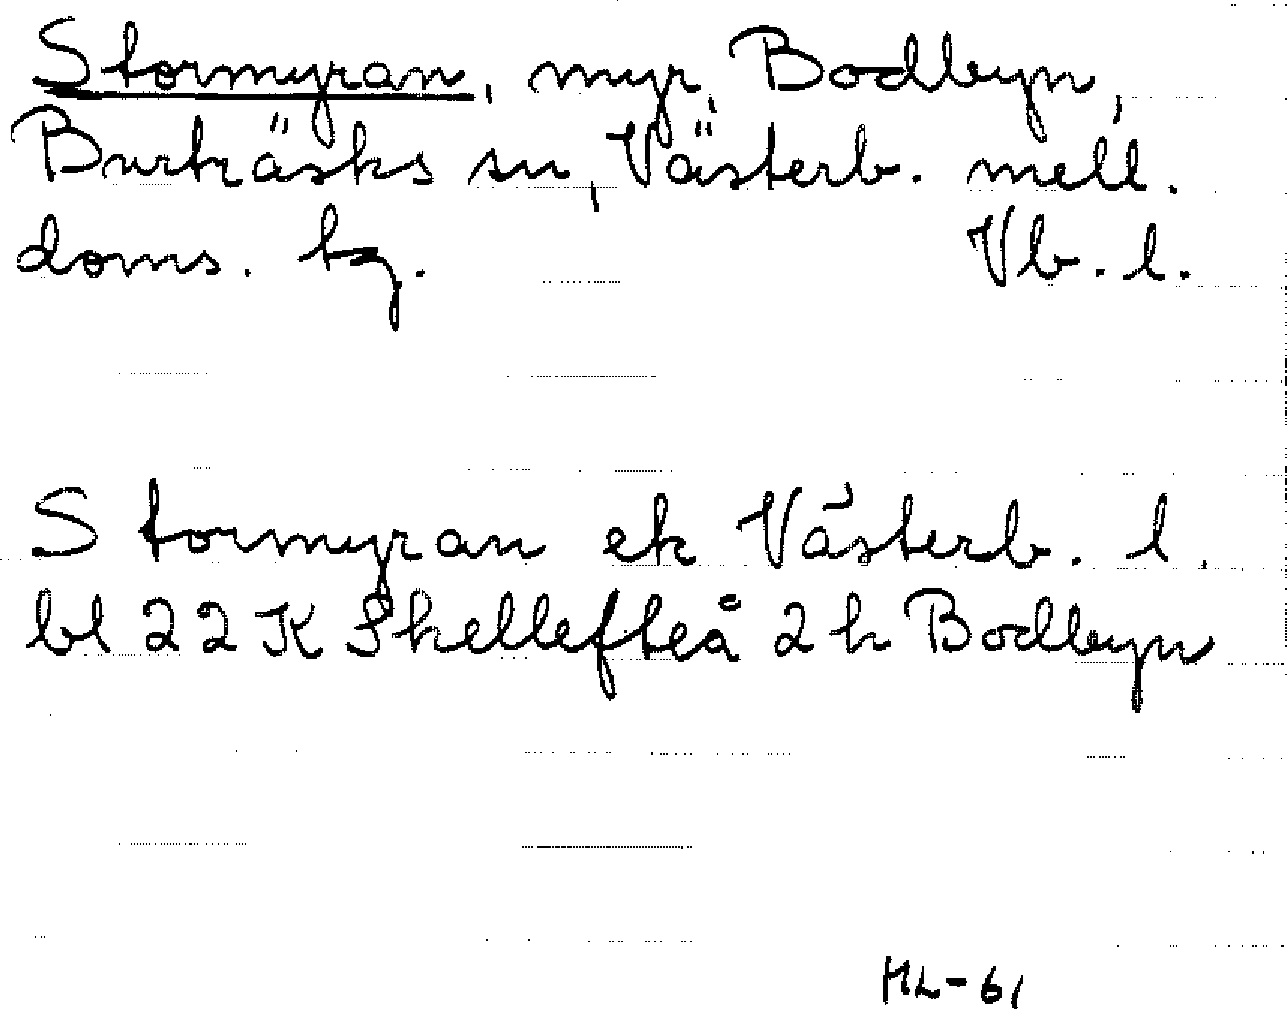 Stormyran, myr, Bodbyn,
Burträsks sn, Västerb. mell.
doms. tg. Vb. l.
Stormyran ek Västerb. l.
bl 22 K Skellefteå 2 h Bodbyn
HL-61